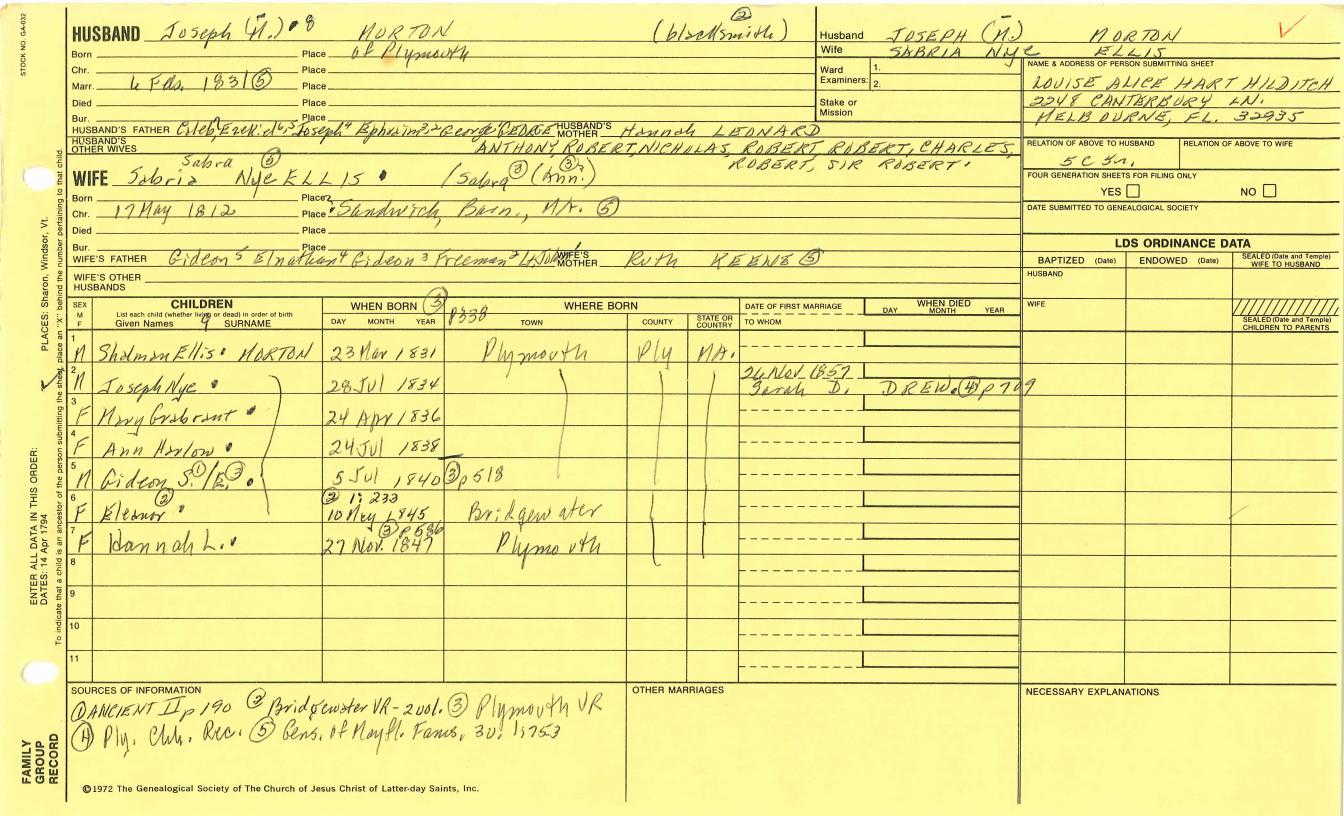 STOCK NO. GA-032
HUSBAND Joseph (M.) 8 MORTON (blacksmith) ②
Born Place of Plymouth
Chr. Place
Marr. 6 Feb. 1831 ⑤ Place
Died Place
Bur. Place
HUSBAND'S FATHER Caleb Ezekiel Joseph⁴ Ephraim³ George GEORGE HUSBAND'S MOTHER Hannah LEONARD
HUSBAND'S OTHER WIVES ANTHONY, ROBERT, NICHOLAS, ROBERT, ROBERT, CHARLES,
ROBERT, SIR ROBERT.
Sabra ⑤
WIFE Sabria Nye ELLIS (Sabra ③ (Ann.) ③
Born Place
Chr. 17 May 1812 Place Sandwich, Barn., MA. ⑤
Died Place
Bur. Place
WIFE'S FATHER Gideon⁵ Elnathan⁴ Gideon³ Freeman² Lt. John WIFE'S MOTHER Ruth KEENE ⑤
WIFE'S OTHER HUSBANDS
Husband JOSEPH (M.) MORTON
Wife SABRIA Nye ELLIS
Ward Examiners: 1.
2.
Stake or Mission
NAME & ADDRESS OF PERSON SUBMITTING SHEET
LOUISE ALICE HART HILDITCH
2248 CANTERBURY LN.
MELBOURNE, FL. 32935
RELATION OF ABOVE TO HUSBAND RELATION OF ABOVE TO WIFE
5C 5r.
FOUR GENERATION SHEETS FOR FILING ONLY
YES NO
DATE SUBMITTED TO GENEALOGICAL SOCIETY
LDS ORDINANCE DATA
BAPTIZED (Date) ENDOWED (Date) SEALED (Date and Temple) WIFE TO HUSBAND
HUSBAND
WIFE
SEALED (Date and Temple) CHILDREN TO PARENTS
SEX M F
CHILDREN
List each child (whether living or dead) in order of birth
Given Names SURNAME
WHEN BORN ③ p338
DAY MONTH YEAR
WHERE BORN
TOWN COUNTY STATE OR COUNTRY
DATE OF FIRST MARRIAGE
TO WHOM
WHEN DIED
DAY MONTH YEAR
1 M Shalman Ellis MORTON 23 Mar 1831 Plymouth Ply MA.
2 M Joseph Nye 28 Jul 1834 26 Nov. 1857 Sarah D. DREW. ④ p709
3 F Mary Grabrant 24 Apr 1836
4 F Ann Harlow 24 Jul 1838
5 M Gideon S. ① /E. ③ 5 Jul 1840 ③ p518
6 F Eleanor ② ② 1: 233 10 May 1845 Bridgewater
7 F Hannah L. ③ p586 27 Nov. 1847 Plymouth
8
9
10
11
SOURCES OF INFORMATION
① ANCIENT II p 190 ② Bridgewater VR-2vol. ③ Plymouth VR
④ Ply. Chh. Rec. ⑤ Gens. of Mayfl. Fams,
OTHER MARRIAGES
NECESSARY EXPLANATIONS
©1972 The Genealogical Society of The Church of Jesus Christ of Latter-day Saints, Inc.
FAMILY GROUP RECORD
ENTER ALL DATA IN THIS ORDER:
DATES: 14 Apr 1794
PLACES: Sharon, Windsor, Vt.
To indicate that a child is an ancestor of the person submitting the sheet, place an "X" behind the number pertaining to that child.